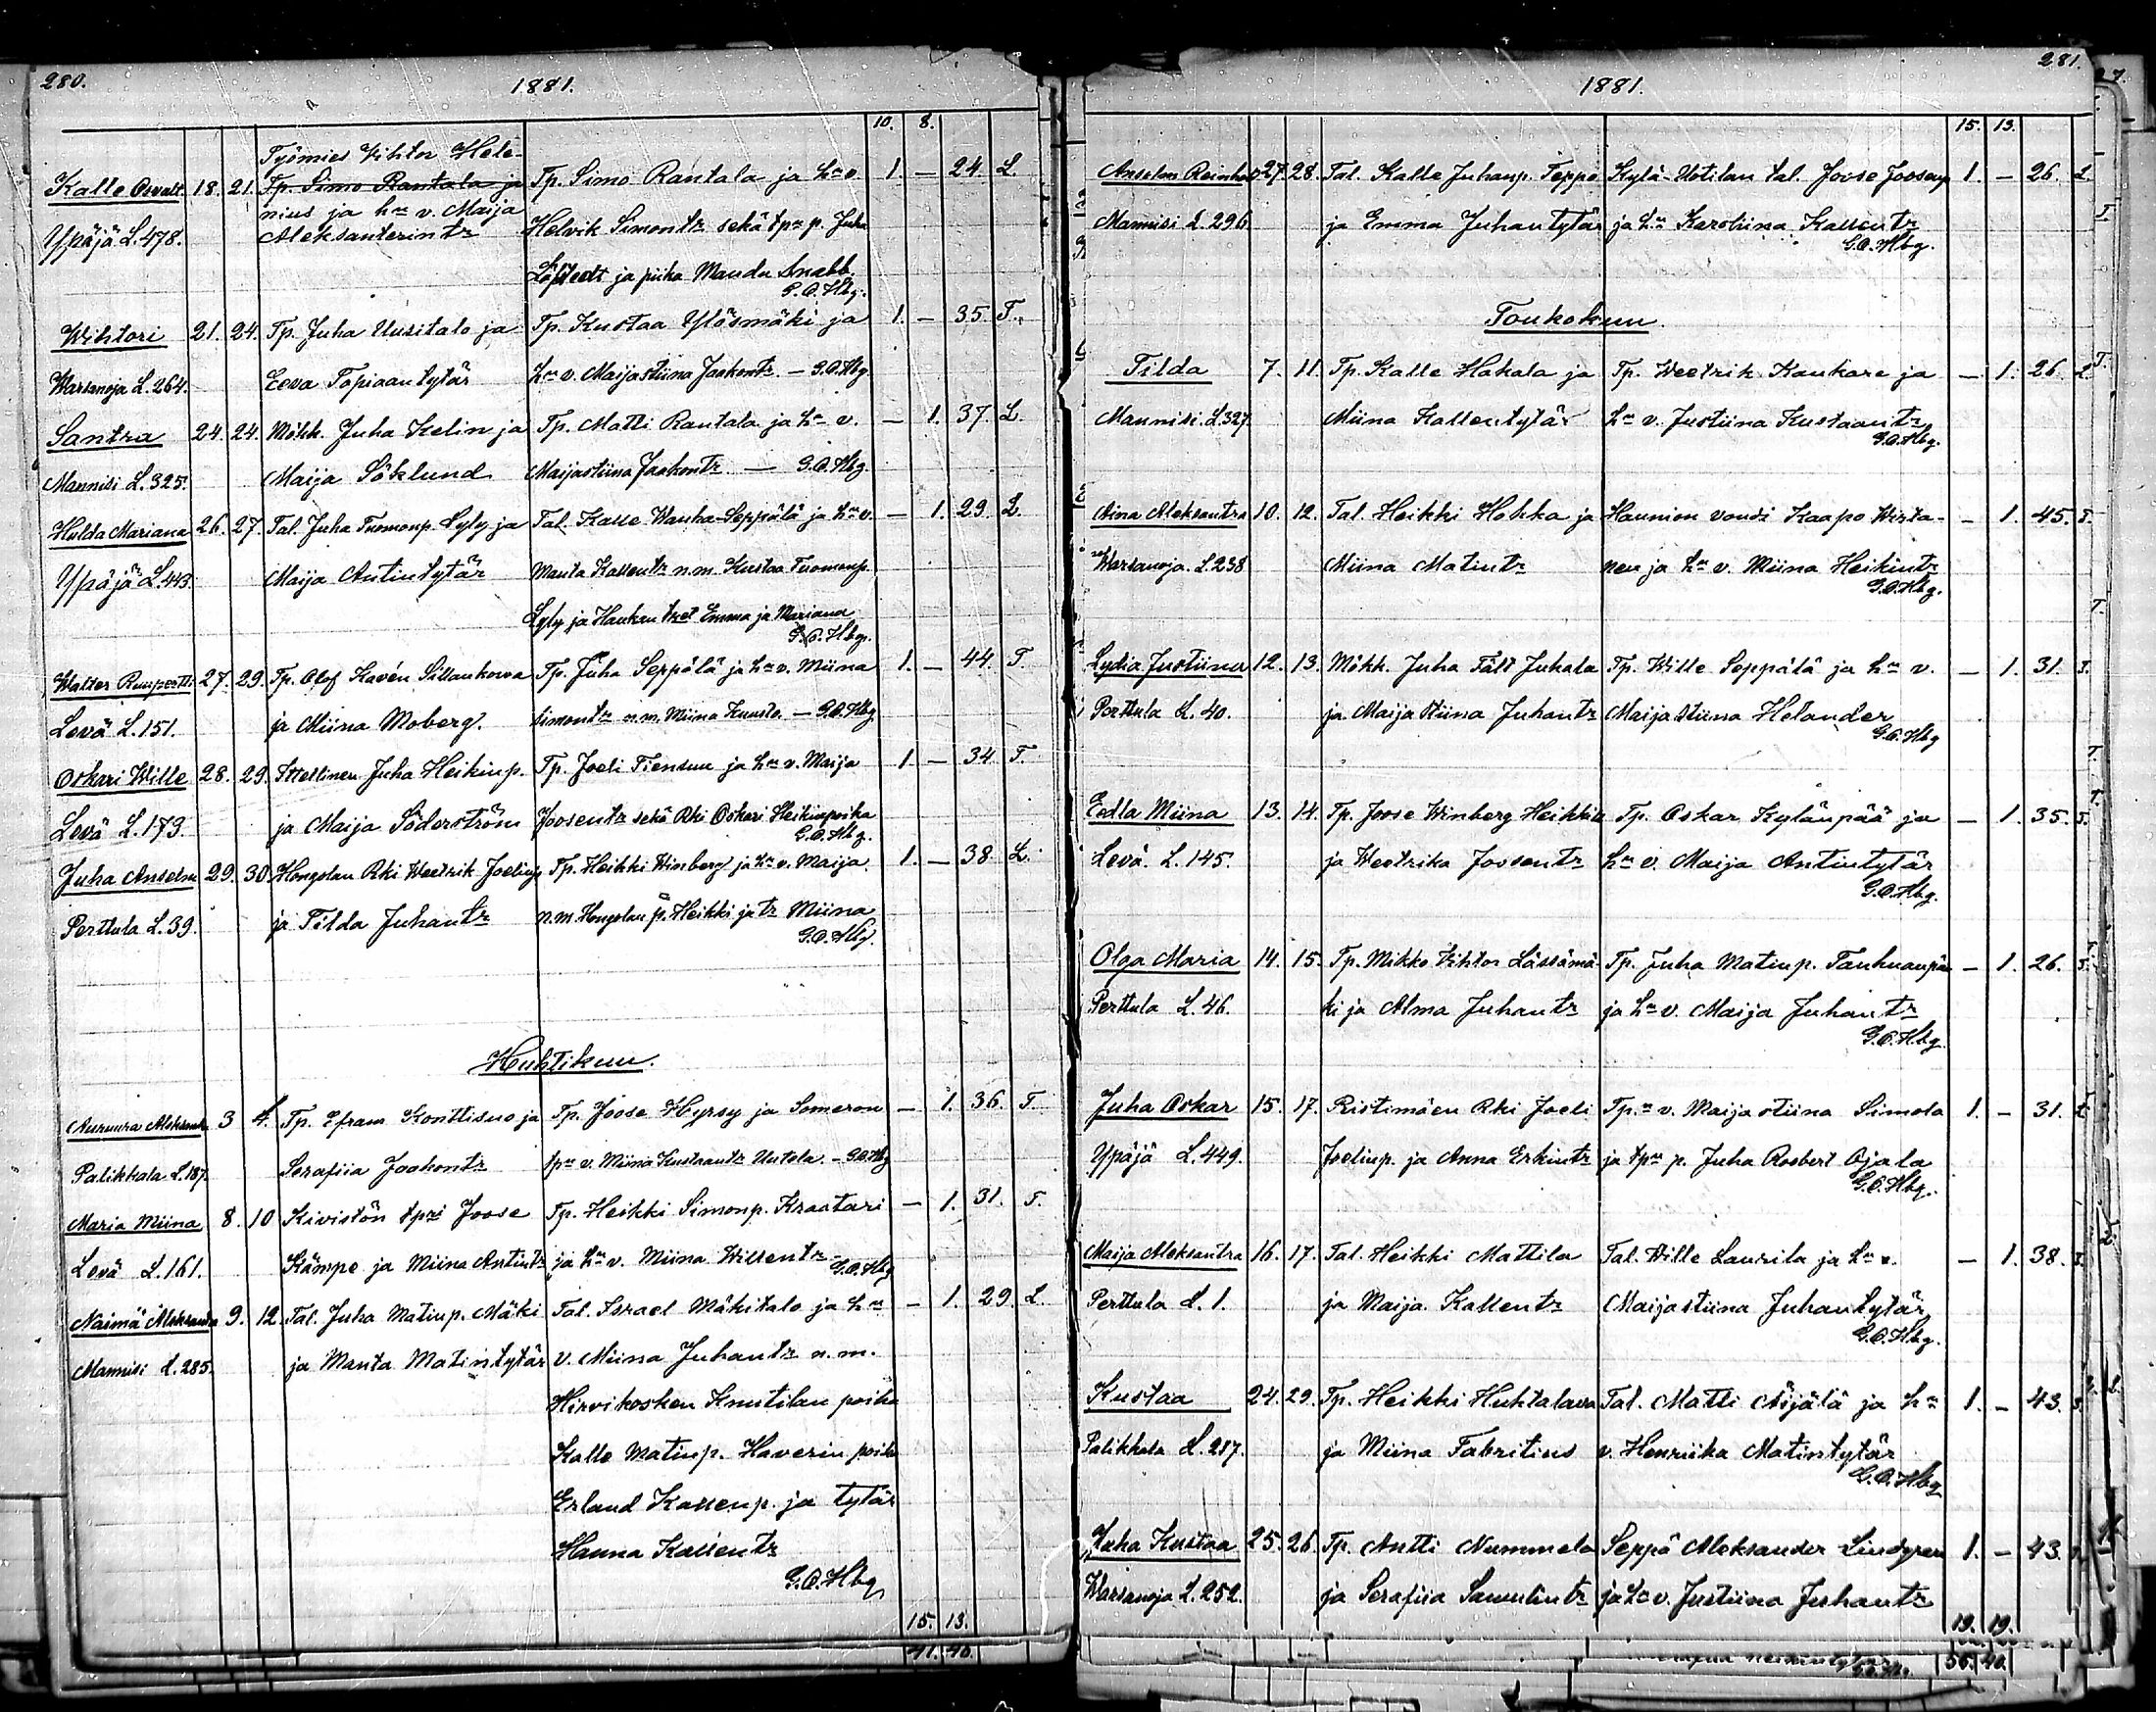 280.
1881.
10. 8.
Kalle Osvalt 18. 21. Työmies Vihtor Hele-
Tp. Simo Rantala ja
nius ja hän v. Maija
Aleksanterintr
Tp. Simo Rantala ja hän v. 1. — 24. L.
Ypäjä L. 478.
Helvik Simontr sekä tpn p. Juha
Löfstedt ja piika Manda Snabb.
G.O.Hbg.
Wihtori 21. 24. Tp. Juha Uusitalo ja Tp. Kustaa Ylösmäki ja 1. — 35. T.
Warsanoja L. 264. Eeva Topiaantytär hän v. Maijastiina Jaakontr — G.O.Hbg.
Santra 24. 24. Mökk. Juha Kelin ja Tp. Matti Rantala ja hän v. — 1. 37. L.
Mannisi L. 325. Maija Söklund Maijastiina Jaakontr — G.O.Hbg.
Hulda Mariana 26. 27. Tal. Juha Tuomonp. Lyly ja Tal. Kalle Wanha-Seppälä ja hän v. — 1. 29. L.
Ypäjä L. 443. Maija Antintytär Manta Kallentr n.m. Kustaa Tuomonp.
Lyly ja Haukan tret Emma ja Mariana
G.O.Hbg.
Walter Ruupertti 27. 29. Tp. Olof Kavén Sillankorva Tp. Juha Seppälä ja hän v. Miina 1. — 44. T.
Levä L. 151. ja Miina Moberg. Simontr n.m. Miina Kuusto. — G.O.Hbg
Oskari Wille 28. 29. Itsellinen Juha Heikinp. Tp. Joeli Tiensuu ja hän v. Maija 1. — 34. T.
Levä L. 179. ja Maija Söderström Joosentr sekä Rki Oskari Heikinpoika
G.O.Hbg.
Juha Anselm 29. 30. Hongolan Rki Weetrik Joelinp Tp. Heikki Winberg ja hän v. Maija 1. — 38. L.
Perttula L. 39. ja Tilda Juhantr n.m. Hongolan p. Heikki ja tr Miina
G.O.Hbg.
Huhtikuu.
3 4. Tp. Efram Konttisuo ja Tp. Joose Hyrsy ja Someron — 1. 36. T.
Palikkala L. 187. Serafiia Jaakontr tpn v. Miina Kustaantr Uutela. — G.O.Hbg
Maria Miina 8. 10 Kivistön tpri Joose Tp. Heikki Simonp. Kraatari — 1. 31. T.
Levä L. 161. Kämpe ja Miina Antintr ja hän v. Miina Willentr — G.O.Hbg
Naimä Aleksandra 9. 12. Tal. Juha Matinp. Mäki Tal. Israel Mäkitalo ja hän — 1. 29. L.
Mannisi L. 285. ja Manta Matintytär v. Miina Juhantr n.m.
Hirvikosken Knutilan poika
Kalle Matinp. Haverin poika
Erland Kallenp. ja tytär
Hanna Kallentr
G.O.Hbg
15. 13.
41. 40.
281.
1881.
15. 13.
Anselm Reinhold 27. 28. Tal. Kalle Juhanp. Teppo Kylä-Uotilan tal. Joose Joosenp 1. — 26. L.
Mannisi L. 296. ja Emma Juhantytär ja hän Karoliina Kallentr
G.O.Hbg.
Toukokuu.
Tilda 7. 11. Tp. Kalle Hakala ja Tp. Weetrik Kankare ja — 1. 26. L.
Mannisi L. 327. Miina Kallentytär hän v. Justiina Kustaantr
G.O.Hbg.
Aina Aleksantra 10. 12. Tal. Heikki Hokka ja Haunion vouti Kaapo Wirta- — 1. 45. T.
Warsanoja L. 238 Miina Matintr nen ja hän v. Miina Heikintr
G.O.Hbg.
Lydia Justiina 12. 13. Mökk. Juha Fält Juhala Tp. Wille Seppälä ja hän v. — 1. 31. T.
Perttula L. 40. ja Maija Stiina Juhantr Maija Stiina Helander
G.O.Hbg
Eedla Miina 13. 14. Tp. Joose Winberg Heikkilä Tp. Oskar Kylänpää ja — 1. 35. T.
Levä L. 145. ja Weetrika Joosentr hän v. Maija Antintytär
G.O.Hbg.
Olga Maria 14. 15. Tp. Mikko Vihtor Lässämä- Tp. Juha Matinp. Tanhuanpää — 1. 26. T.
Perttula L. 46. ki ja Alma Juhantr ja hän v. Maija Juhantr
G.O.Hbg.
Juha Oskar 15. 17. Ristimäen Rki Joeli Tpn v. Maija stiina Simola 1. — 31. L.
Ypäjä L. 449. Joelinp. ja Anna Erkintr ja tpn p. Juha Roobert Ojala
G.O.Hbg.
Maija Aleksantra 16. 17. Tal. Heikki Mattila Tal. Wille Laurila ja hän v. — 1. 38. T.
Perttula L. 1. ja Maija Kallentr Maijastiina Juhantytär
G.O.Hbg.
Kustaa 24. 29. Tp. Heikki Huhtalawa Tal. Matti Äijälä ja hän 1. — 43. T.
Palikkala L. 217. ja Miina Fabritius v. Henriika Matintytär
G.O.Hbg
Juha Kustaa 25. 26. Tp. Antti Nummela Seppä Aleksander Lindgren 1. — 43.
Warsanoja L. 252. ja Serafiia Samulintr ja hän v. Justiina Juhantr
19. 19.
56. 40.